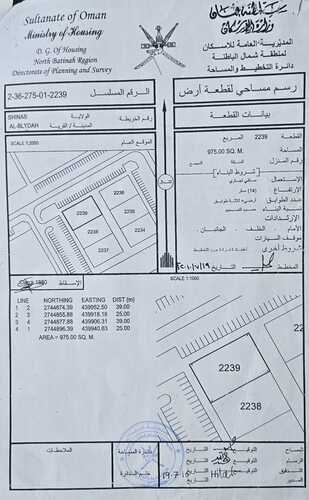 Sultanate of Oman
Ministry of Housing
D. G. Of Housing
North Batinah Region
Directorate of Planning and Survey
وزارة الإسكان
المديرية العامة للاسكان
لمنطقة شمال الباطنة
دائرة التخطيط والمساحة
2-36-275-01-2239
الرقم المسلسل
رسم مساحي لقطعة أرض
SHINAS
الولاية
AL-BLYDAH
المدينة / القرية
رقم الخريطة
بيانات القطعة
SCALE 1:2000
الموقع العام
القطعة 2239 المربع
975.00 SQ. M.
المساحة
رقم المنزل
شروط البناء
الاستعمال
الارتفاع (14) متر
عدد الطوابق
نسبة البناء
الإرتدادات
الأمام - الخلف - الجانبان
موقف السيارات
شروط أخرى
المخطط
التاريخ
2236
2239
2238
2237
2234
SCALE 1:1000
الإسقاط
LINE NORTHING EASTING DIST (m)
1 2 2744874.39 439952.50 39.00
2 3 2744855.88 439918.18 25.00
3 4 2744877.88 439906.31 39.00
4 1 2744896.39 439940.63 25.00
AREA = 975.00 SQ. M.
2239
2238
الملاحظات
دائرة المساحة
ختم الدائرة
المساح
التوقيع
التاريخ
الرسام
التوقيع
التاريخ
التدقيق
التوقيع
التاريخ
المدير
19.7.10
Hilal